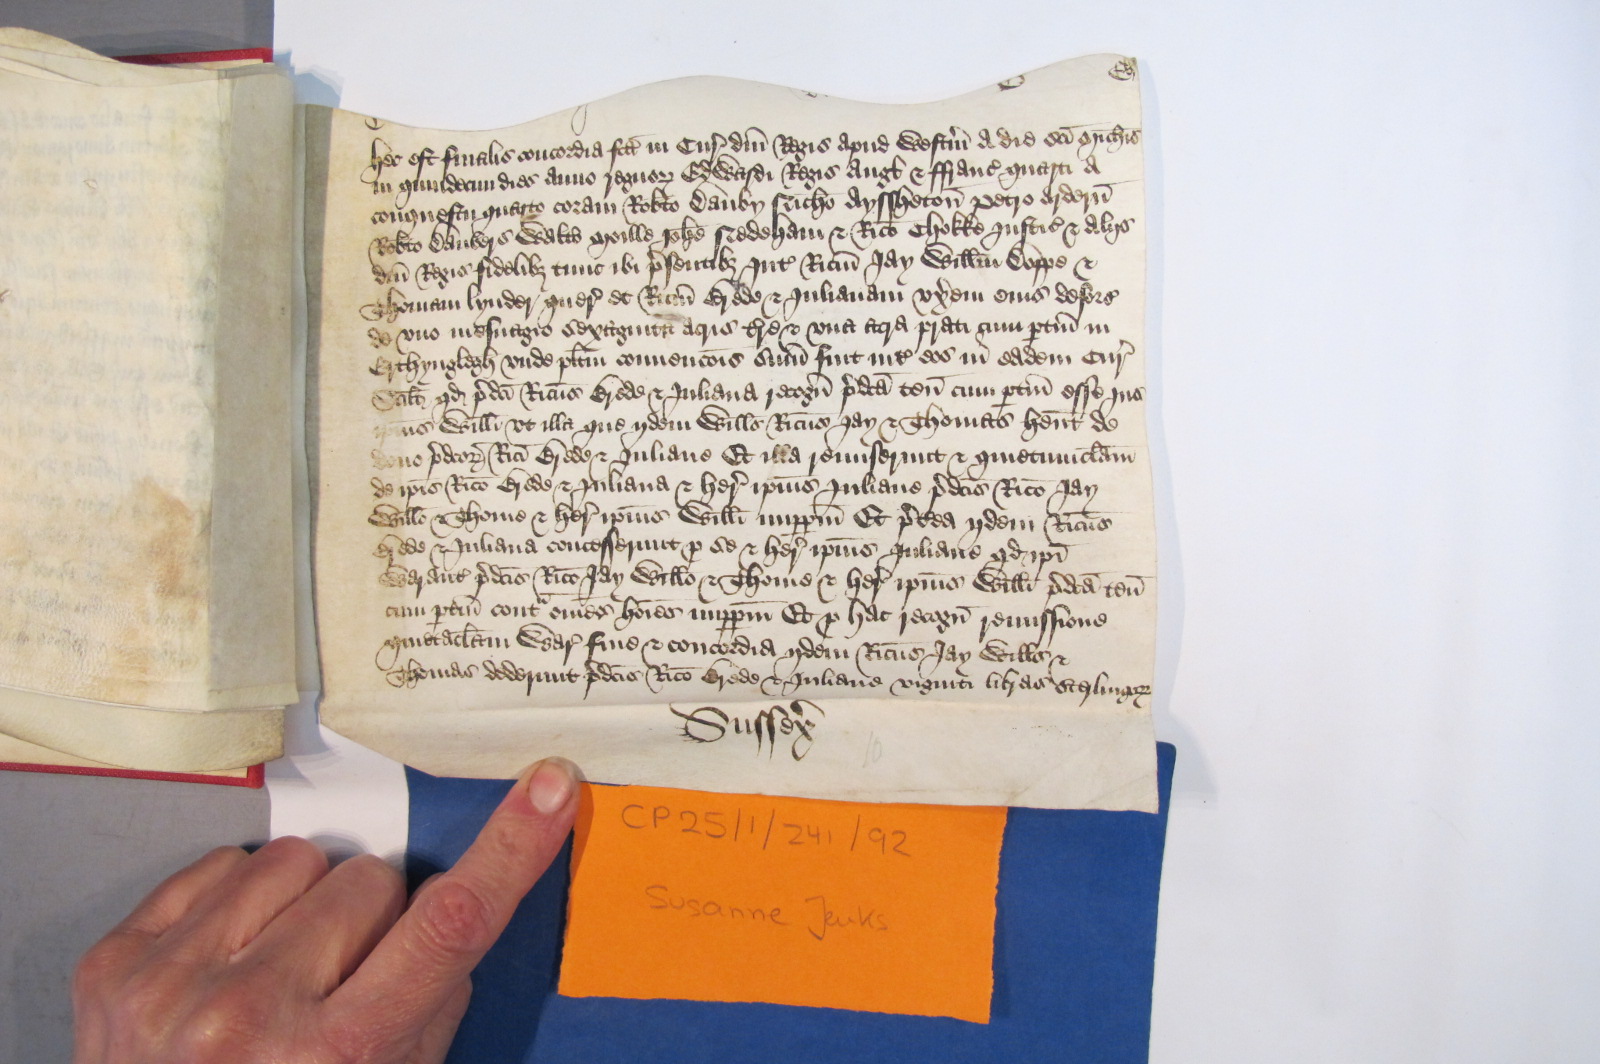 Hec est finalis concordia fcā in Cur̄ dn̄i Regis apud Westm̄ A die sc̄i Mich̄is
in quindecim dies anno regnor̄ Edwardi Regis Angl̄ & ffranc̄ quarti a
conquestu quarto coram Rob̄to Danby Nich̄o Ayssheton̄ Petro Ardern̄
Rob̄to Danvers Walt̄o Moille Joh̄e Nedeham & Ric̄o Chokke Justic̄ & alijs
dn̄i Regis fidelibȝ tunc ibi p̄sentibȝ Int̄ Ric̄m Jay Will̄m Coppe &
Thomam Lynder quer̄ et Ric̄m Brede & Julianam vx̄em eius deforc̄
de vno mesuagio sexaginta acris t̄re & vna acra prati cum ptin̄ in
Erthynglegh vnde pl̄itum convenc̄ois sum̄ fuit int̄ eos in eadem Cur̄
Scilt̄ qd̄ p̄dc̄i Ric̄us Brede & Juliana recogn̄ p̄dc̄a ten̄ cum ptin̄ esse jus
ip̄ius Will̄i vt illa que ijdem Will̄s Ric̄us Jay & Thomas hent̄ de
dono p̄dc̄or̄ Ric̄i Brede & Juliane Et illa remiserunt & quietumclam̄
de ip̄is Ric̄o Brede & Juliana & her̄ ip̄ius Juliane p̄dc̄is Ric̄o Jay
Will̄o & Thome & her̄ ip̄ius Will̄i imp̄p̄m Et p̄terea ijdem Ric̄us
Brede & Juliana concesserunt p se & her̄ ip̄ius Juliane qd̄ ip̄i
Warant̄ p̄dc̄is Ric̄o Jay Will̄o & Thome & her̄ ip̄ius Will̄i p̄dc̄a ten̄
cum ptin̄ contᵃ om̄es ho̅i̅e̅s̅ imp̄p̄m Et p hac recogn̄ remissione
quietaclam̄ War̄ fine & concordia ijdem Ric̄us Jay Will̄s &
Thomas dederunt p̄dc̄is Ric̄o Brede & Juliane viginti libras sterlingor̄
Sussex̄
10
CP25/1/241/92
Susanne Jenks